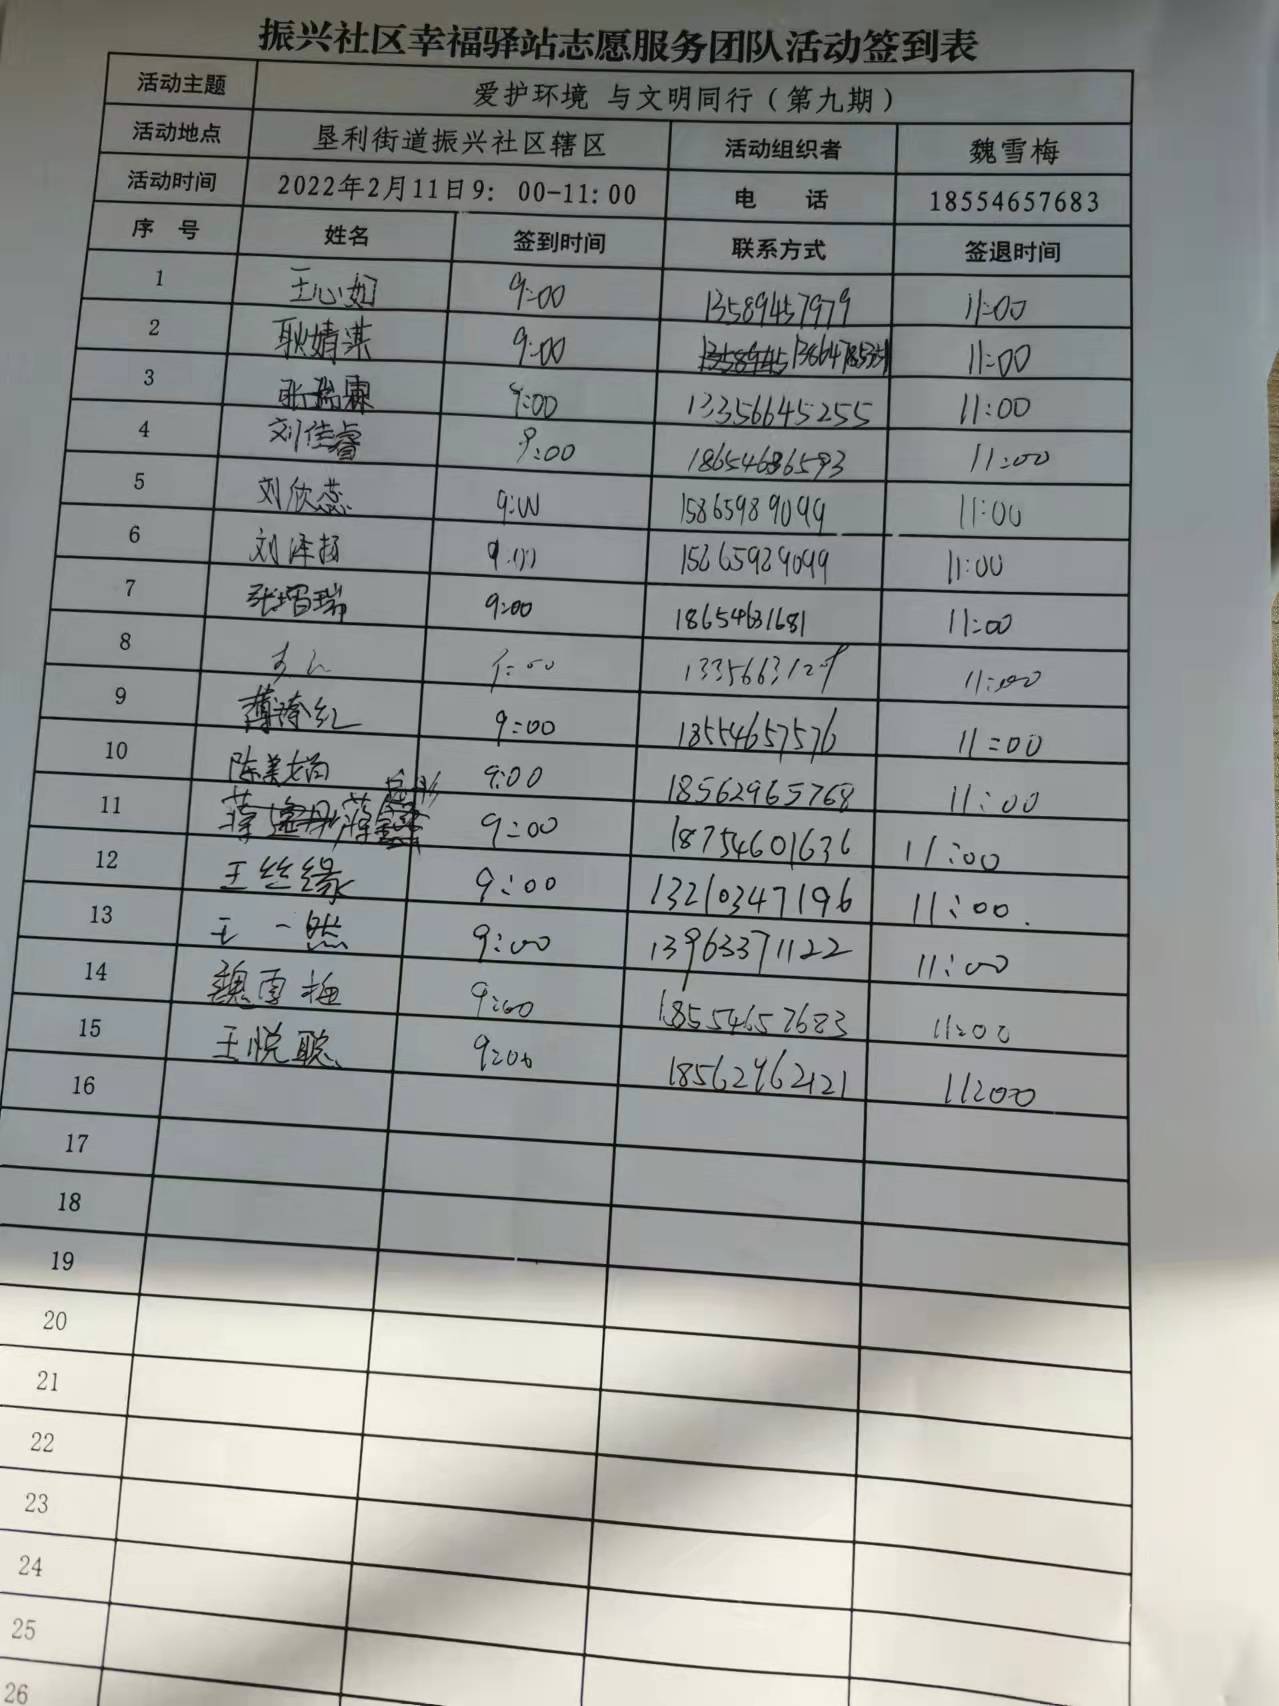 振兴社区幸福驿站志愿服务团队活动签到表
活动主题 爱护环境 与文明同行（第九期）
活动地点 垦利街道振兴社区辖区 活动组织者 魏雪梅
活动时间 2022年2月11日9：00-11：00 电 话 18554657683
序 号 姓名 签到时间 联系方式 签退时间
1 王心如 9:00 13589457979 11:00
2 耿婧淇 9:00 11:00
3 张瑞霖 9:00 13356645255 11:00
4 刘佳睿 9:00 18654686593 11:00
5 刘欣蕊 9:00 15865989099 11:00
6 刘泽扬 9:00 15865989099 11:00
7 张瑞 9:00 18654631681 11:00
8 9:00 11:00
9 薄涛红 9:00 18554657576 11:00
10 陈美 9:00 18562965768 11:00
11 9:00 18754601636 11:00
12 王丝缘 9:00 13210347196 11:00.
13 王一然 9:00 13963371122 11:00
14 魏雪梅 9:00 18554657683 11:00
15 王悦聪 9:00 18562962121 11:00
16
17
18
19
20
21
22
23
24
25
26